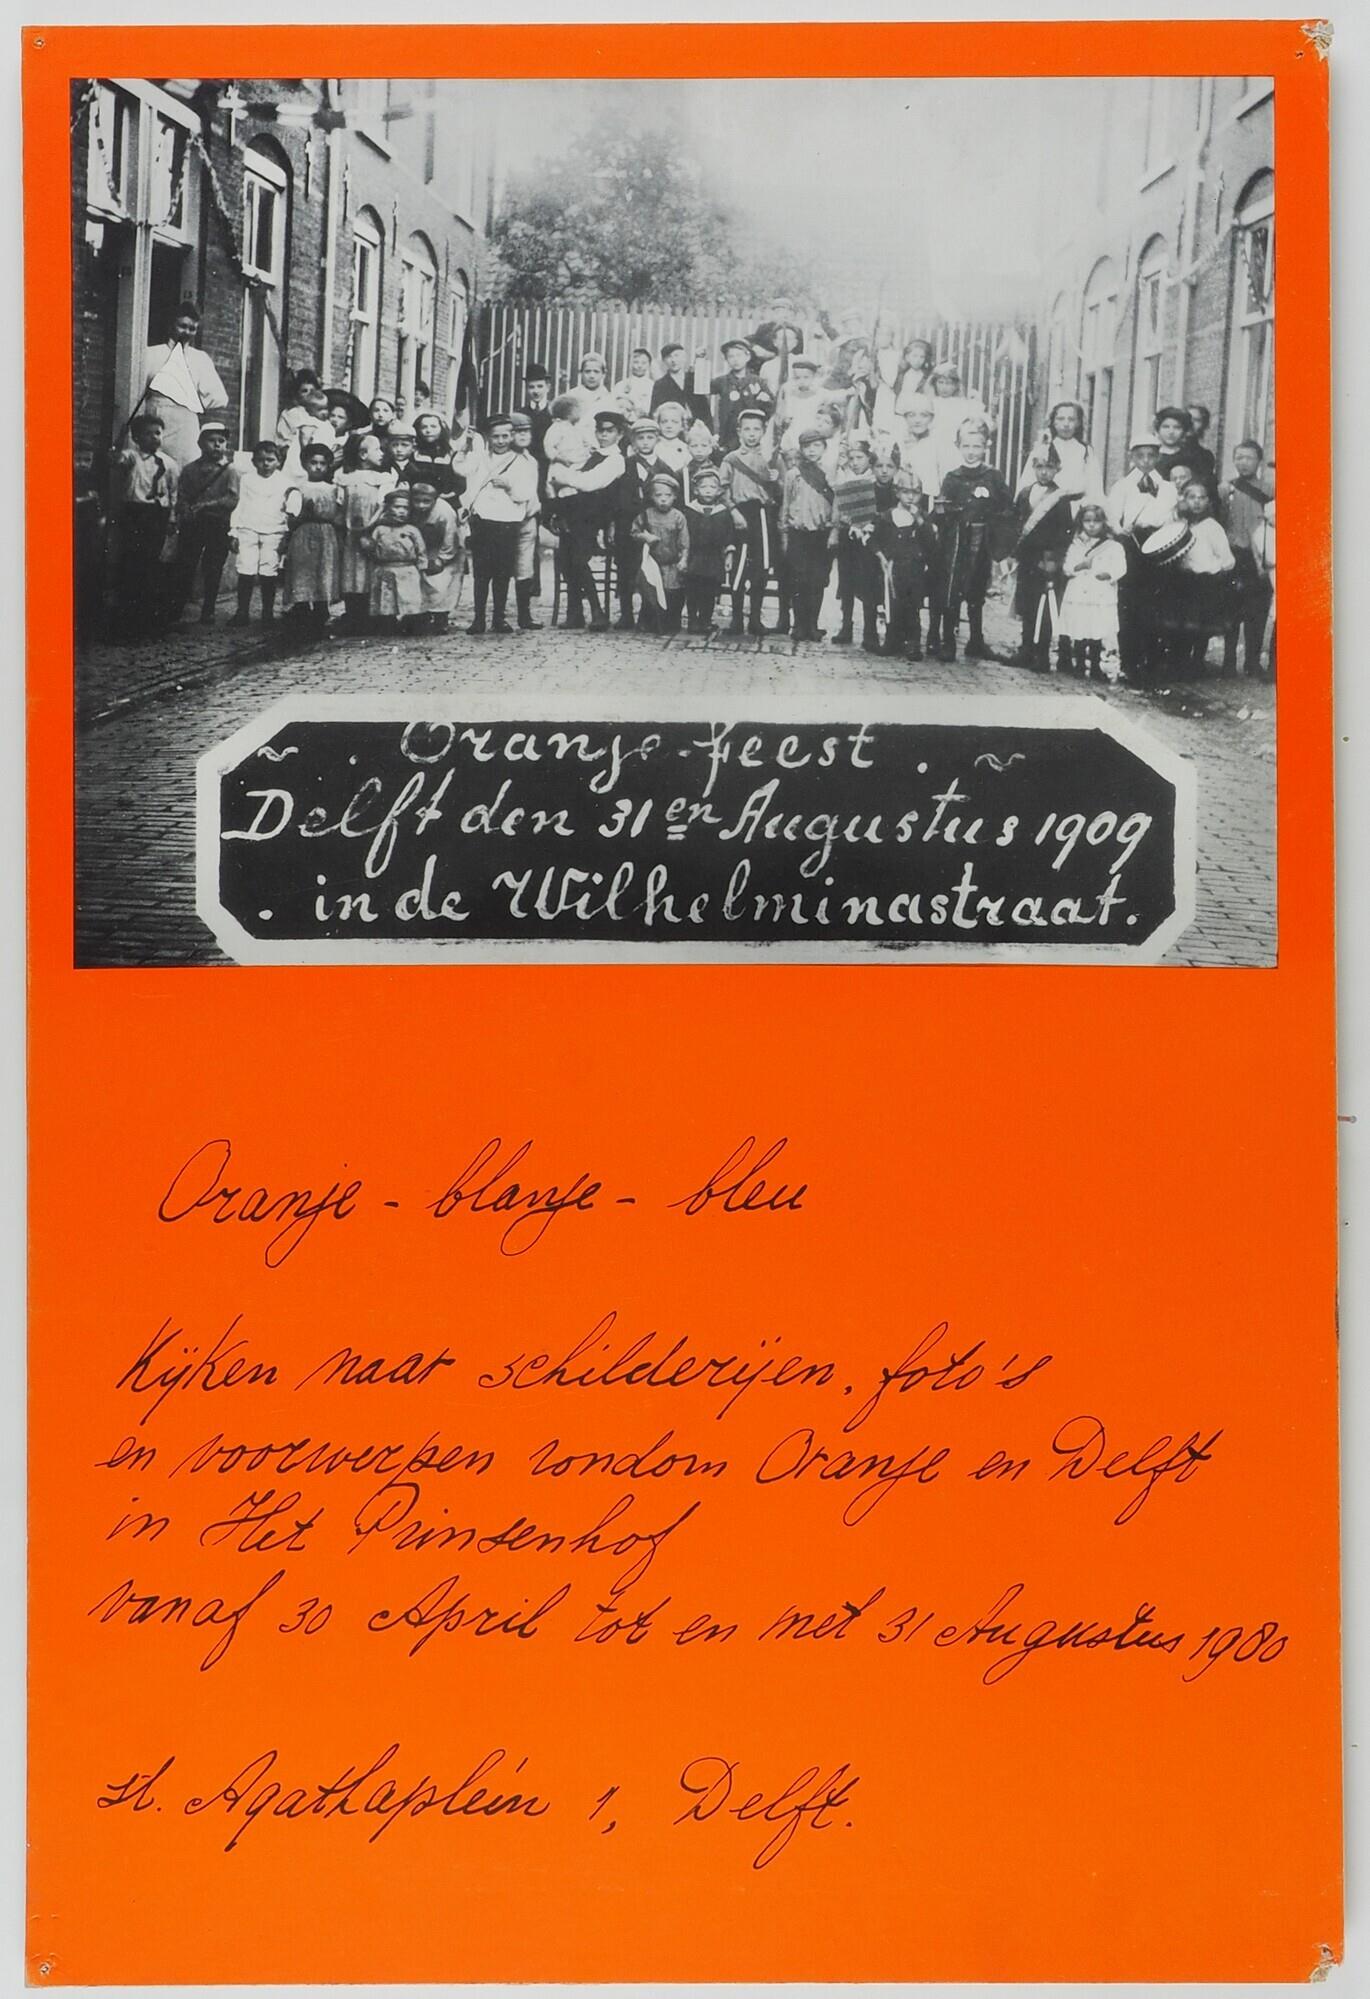 ~ . Oranje-feest . ~
Delft den 31en Augustus 1909
. in de Wilhelminastraat.
Oranje - blanje - bleu
Kijken naar schilderijen, foto's
en voorwerpen rondom Oranje en Delft
in Het Prinsenhof
vanaf 30 April tot en met 31 Augustus 1980
st. Agathaplein 1, Delft.